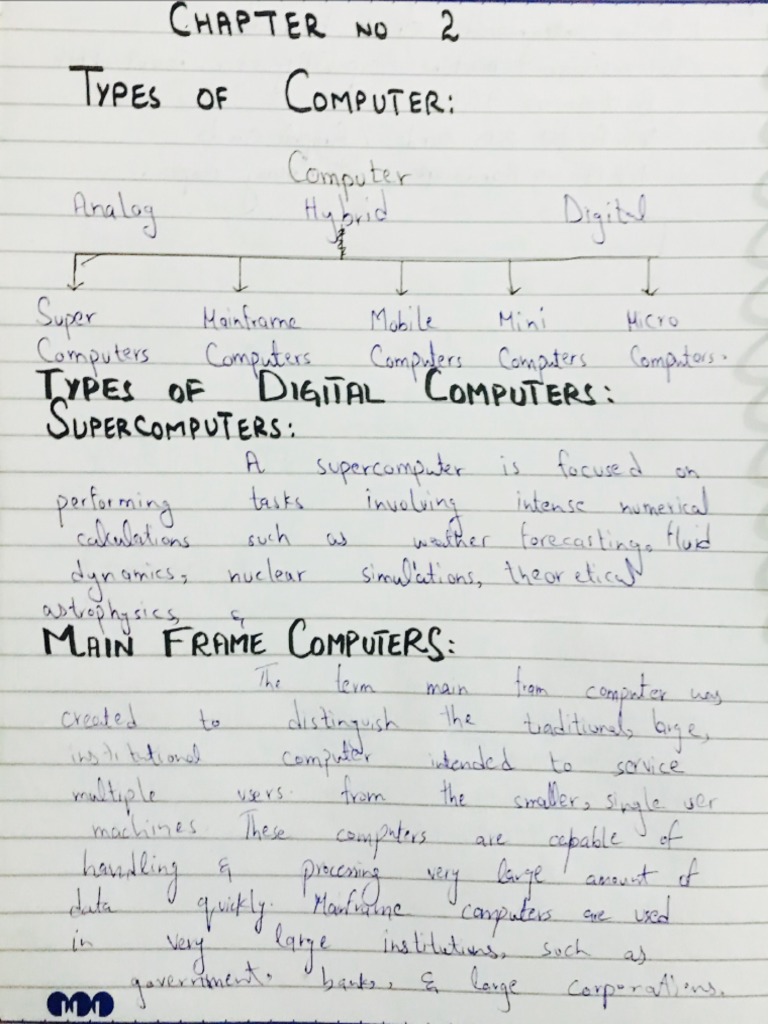 CHAPTER NO 2
TYPES OF COMPUTER:
Computer
Analog Hybrid Digital
Super Mainframe Mobile Mini Micro
Computers Computers Computers Computers Computers.
TYPES OF DIGITAL COMPUTERS:
SUPERCOMPUTERS:
A supercomputer is focused on
performing tasks involving intense numerical
calculations such as weather forecasting, fluid
dynamics, nuclear simulations, theoretical
astrophysics, &
MAIN FRAME COMPUTERS:
The term main from computer was
created to distinguish the traditional, large,
institutional computer intended to service
multiple users from the smaller, single user
machines These computers are capable of
handling & processing very large amount of
data quickly. Mainframe computers are used
in very large institutions, such as
government, banks, & large corporations.